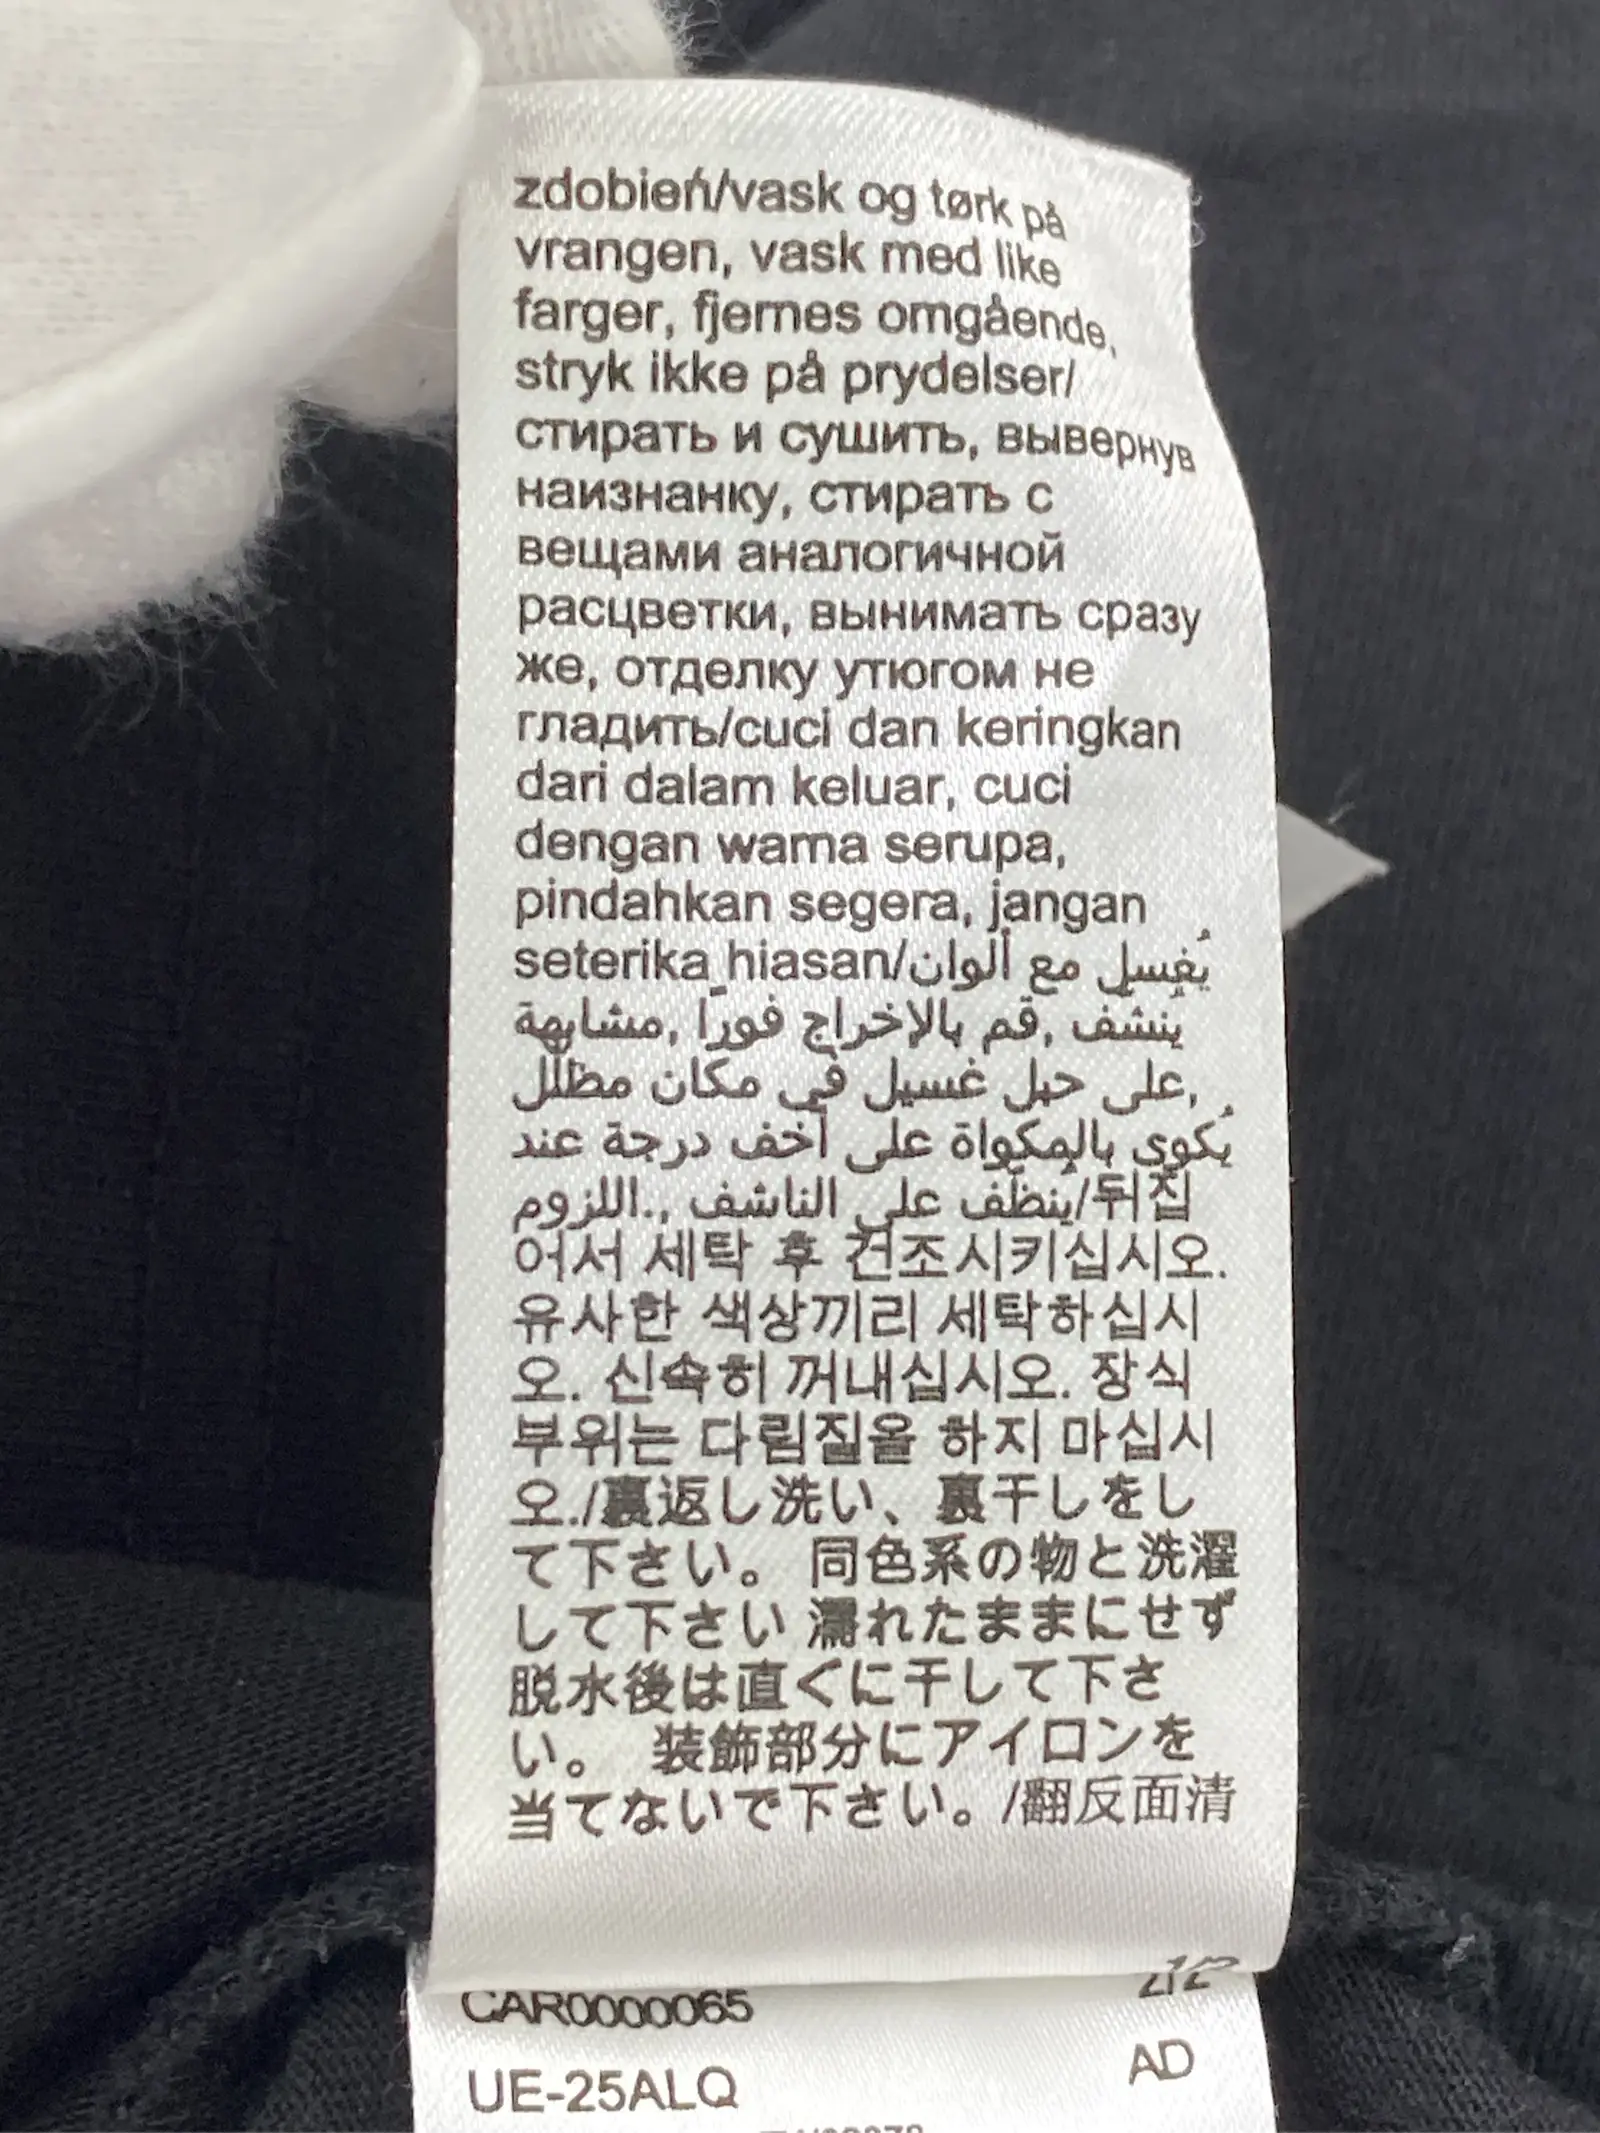 zdobień/vask og tørk på
vrangen, vask med like
farger, fjernes omgående,
stryk ikke på prydelser/
стирать и сушить, вывернув
наизнанку, стирать с
вещами аналогичной
расцветки, вынимать сразу
же, отделку утюгом не
гладить/cuci dan keringkan
dari dalam keluar, cuci
dengan warna serupa,
pindahkan segera, jangan
seterika hiasan/يُغسل مع ألوان
مشابهة, قم بالإخراج فورًا, يُنشف
على حبل غسيل في مكان مظلّل,
يُكوى بالمكواة على أخف درجة عند
اللزوم., يُنظّف على الناشف/뒤집
어서 세탁 후 건조시키십시오.
유사한 색상끼리 세탁하십시
오. 신속히 꺼내십시오. 장식
부위는 다림질을 하지 마십시
오./裏返し洗い、裏干しをし
て下さい。 同色系の物と洗濯
して下さい 濡れたままにせず
脱水後は直ぐに干して下さ
い。 装飾部分にアイロンを
当てないで下さい。/翻反面清
CAR0000065
AD
UE-25ALQ